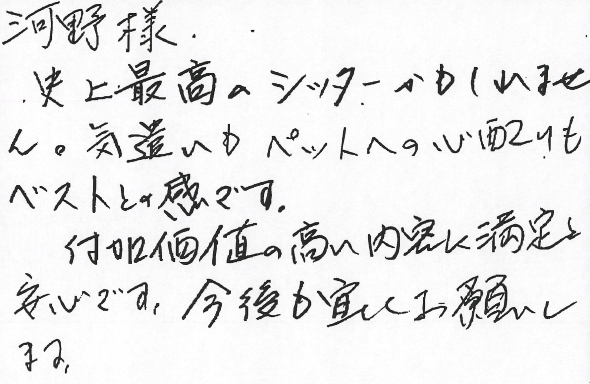 河野様.
史上最高のシッターかもしれませ
ん。気遣いもペットへの心配りも
ベストとの感です。
付加価値の高い内容に満足と
安心です。今後も宜しくお願いし
ます。